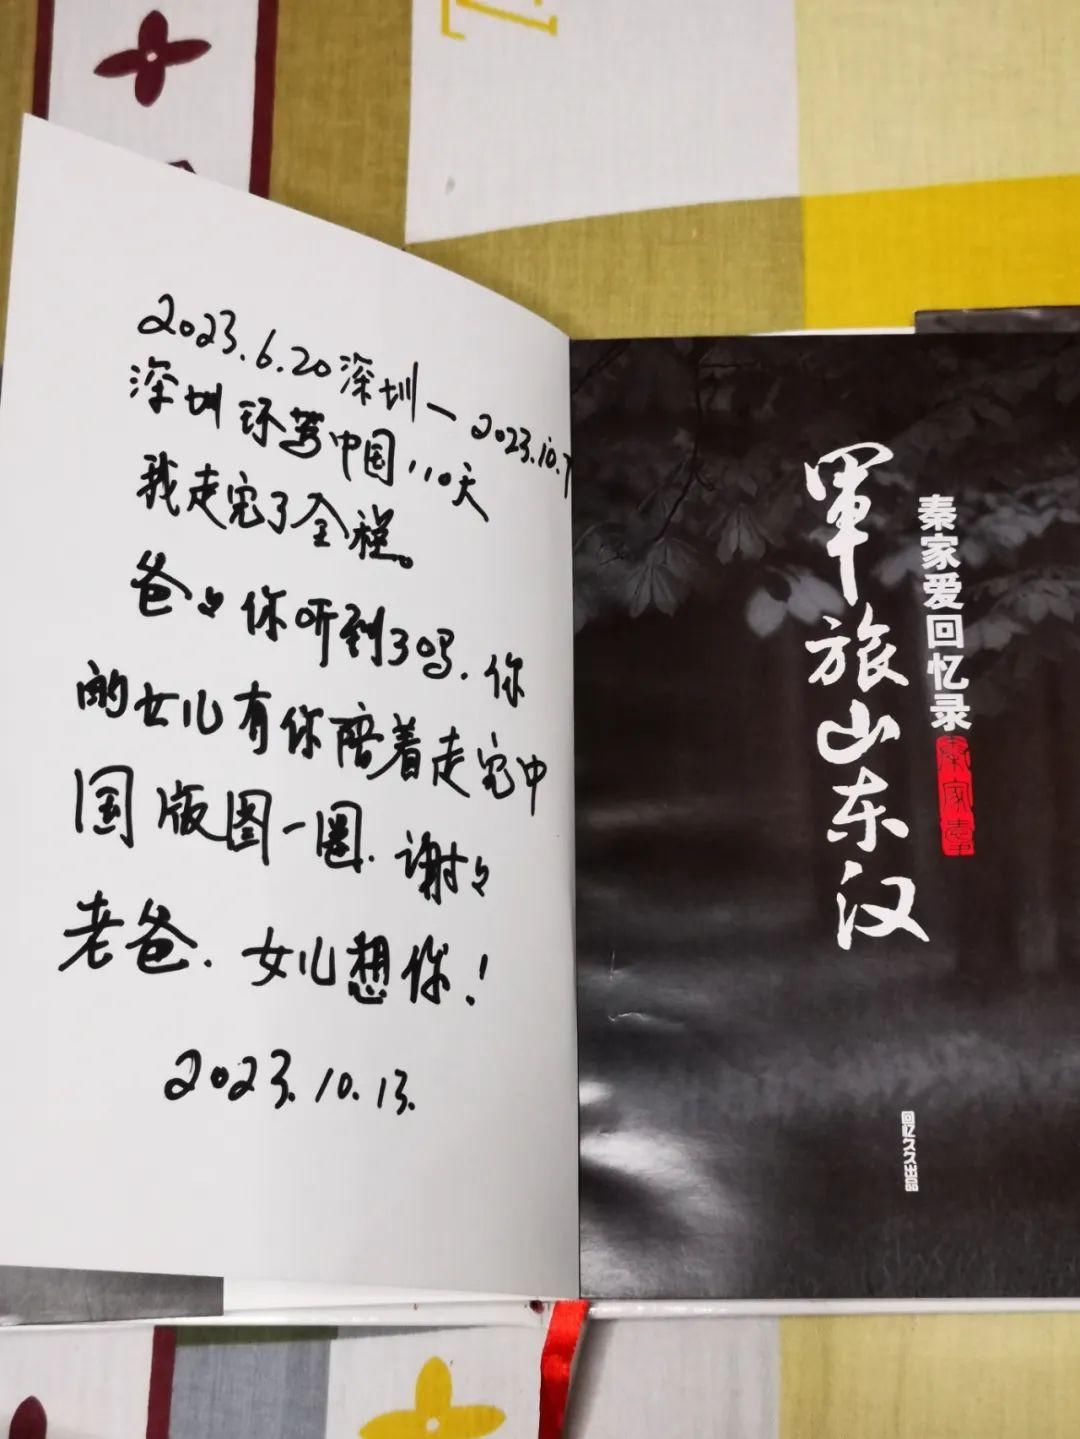 2023.6.20深圳—2023.10.7
深圳环驾中国110天
我走完了全程。
爸爸你听到了吗.你
的女儿有你陪着走完中
国版图一圈.谢谢
老爸.女儿想你!
2023.10.13.
军旅山东汉
秦家爱回忆录
秦家爱印
回忆久久出品